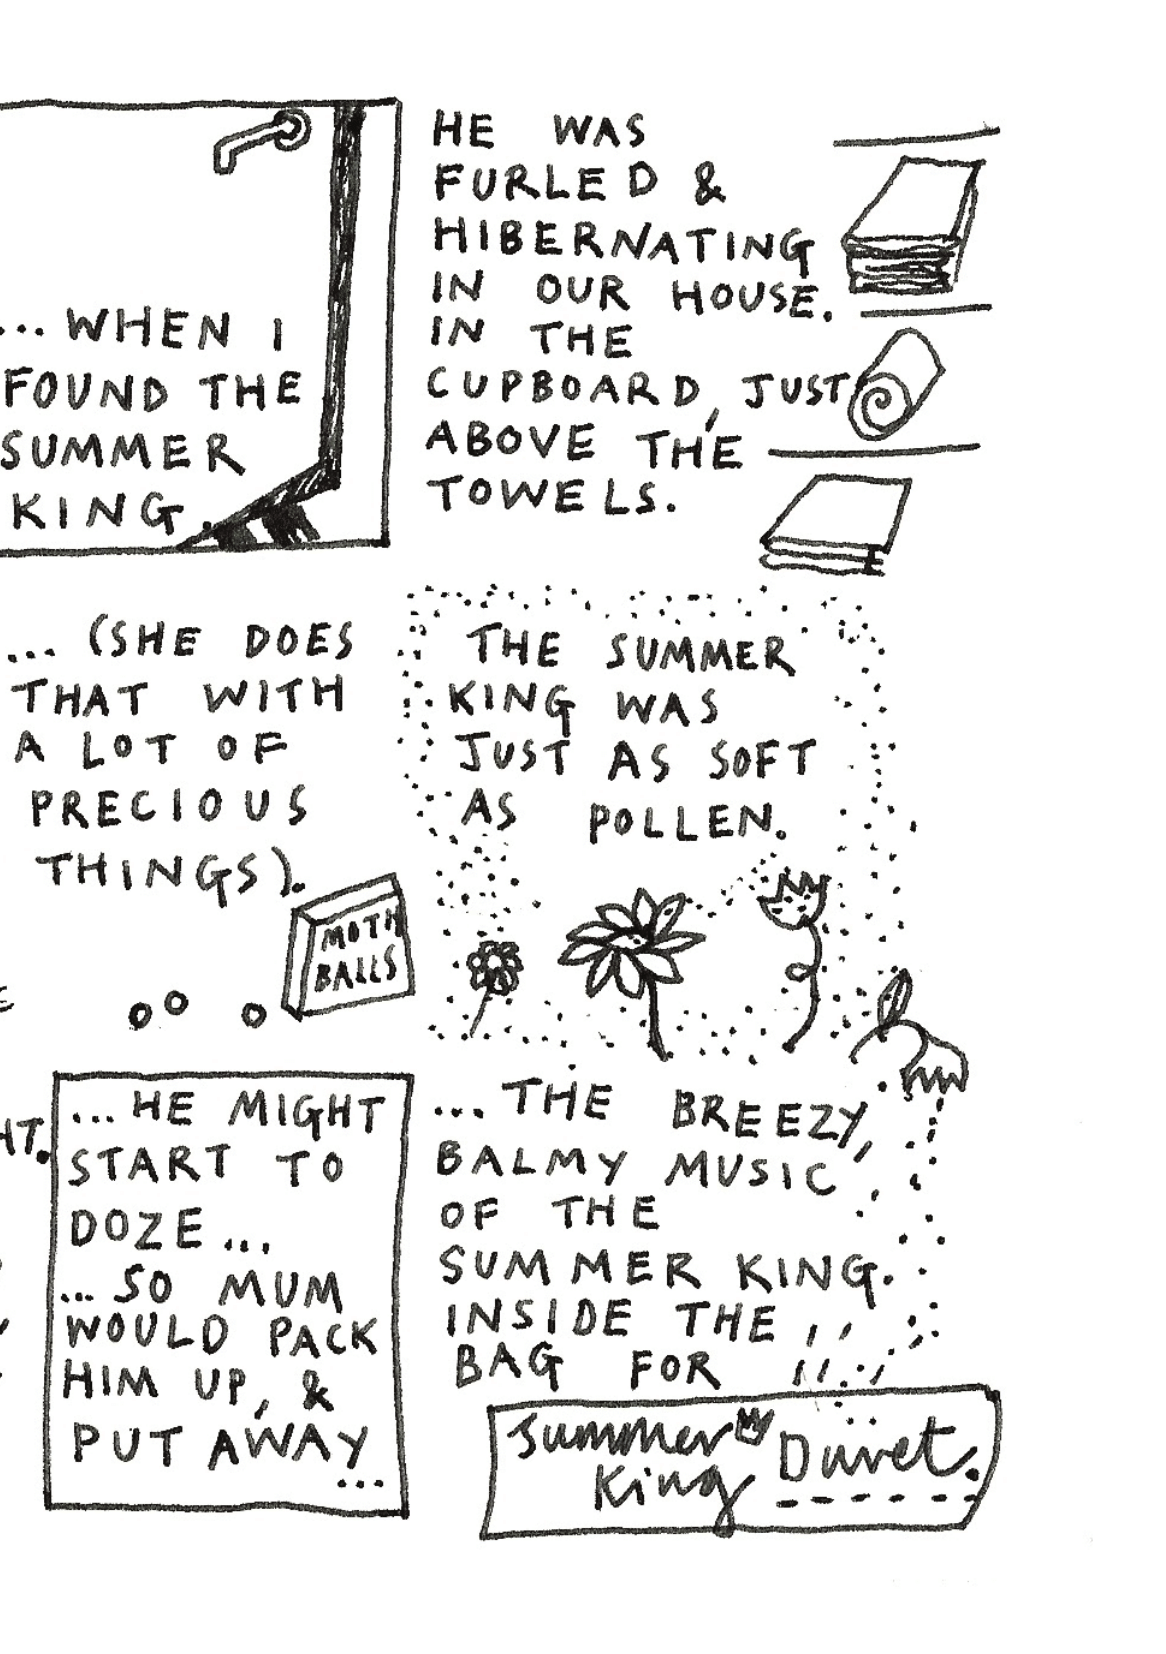 ...WHEN I
FOUND THE
SUMMER
KING.
HE WAS
FURLED &
HIBERNATING
IN OUR HOUSE.
IN THE
CUPBOARD, JUST
ABOVE THE
TOWELS.
... (SHE DOES
THAT WITH
A LOT OF
PRECIOUS
THINGS).
MOTH
BALLS
THE SUMMER
KING WAS
JUST AS SOFT
AS POLLEN.
...HE MIGHT
START TO
DOZE...
...SO MUM
WOULD PACK
HIM UP, &
PUT AWAY
...
...THE BREEZY,
BALMY MUSIC
OF THE
SUMMER KING.
INSIDE THE
BAG FOR
Summer
King Duvet.